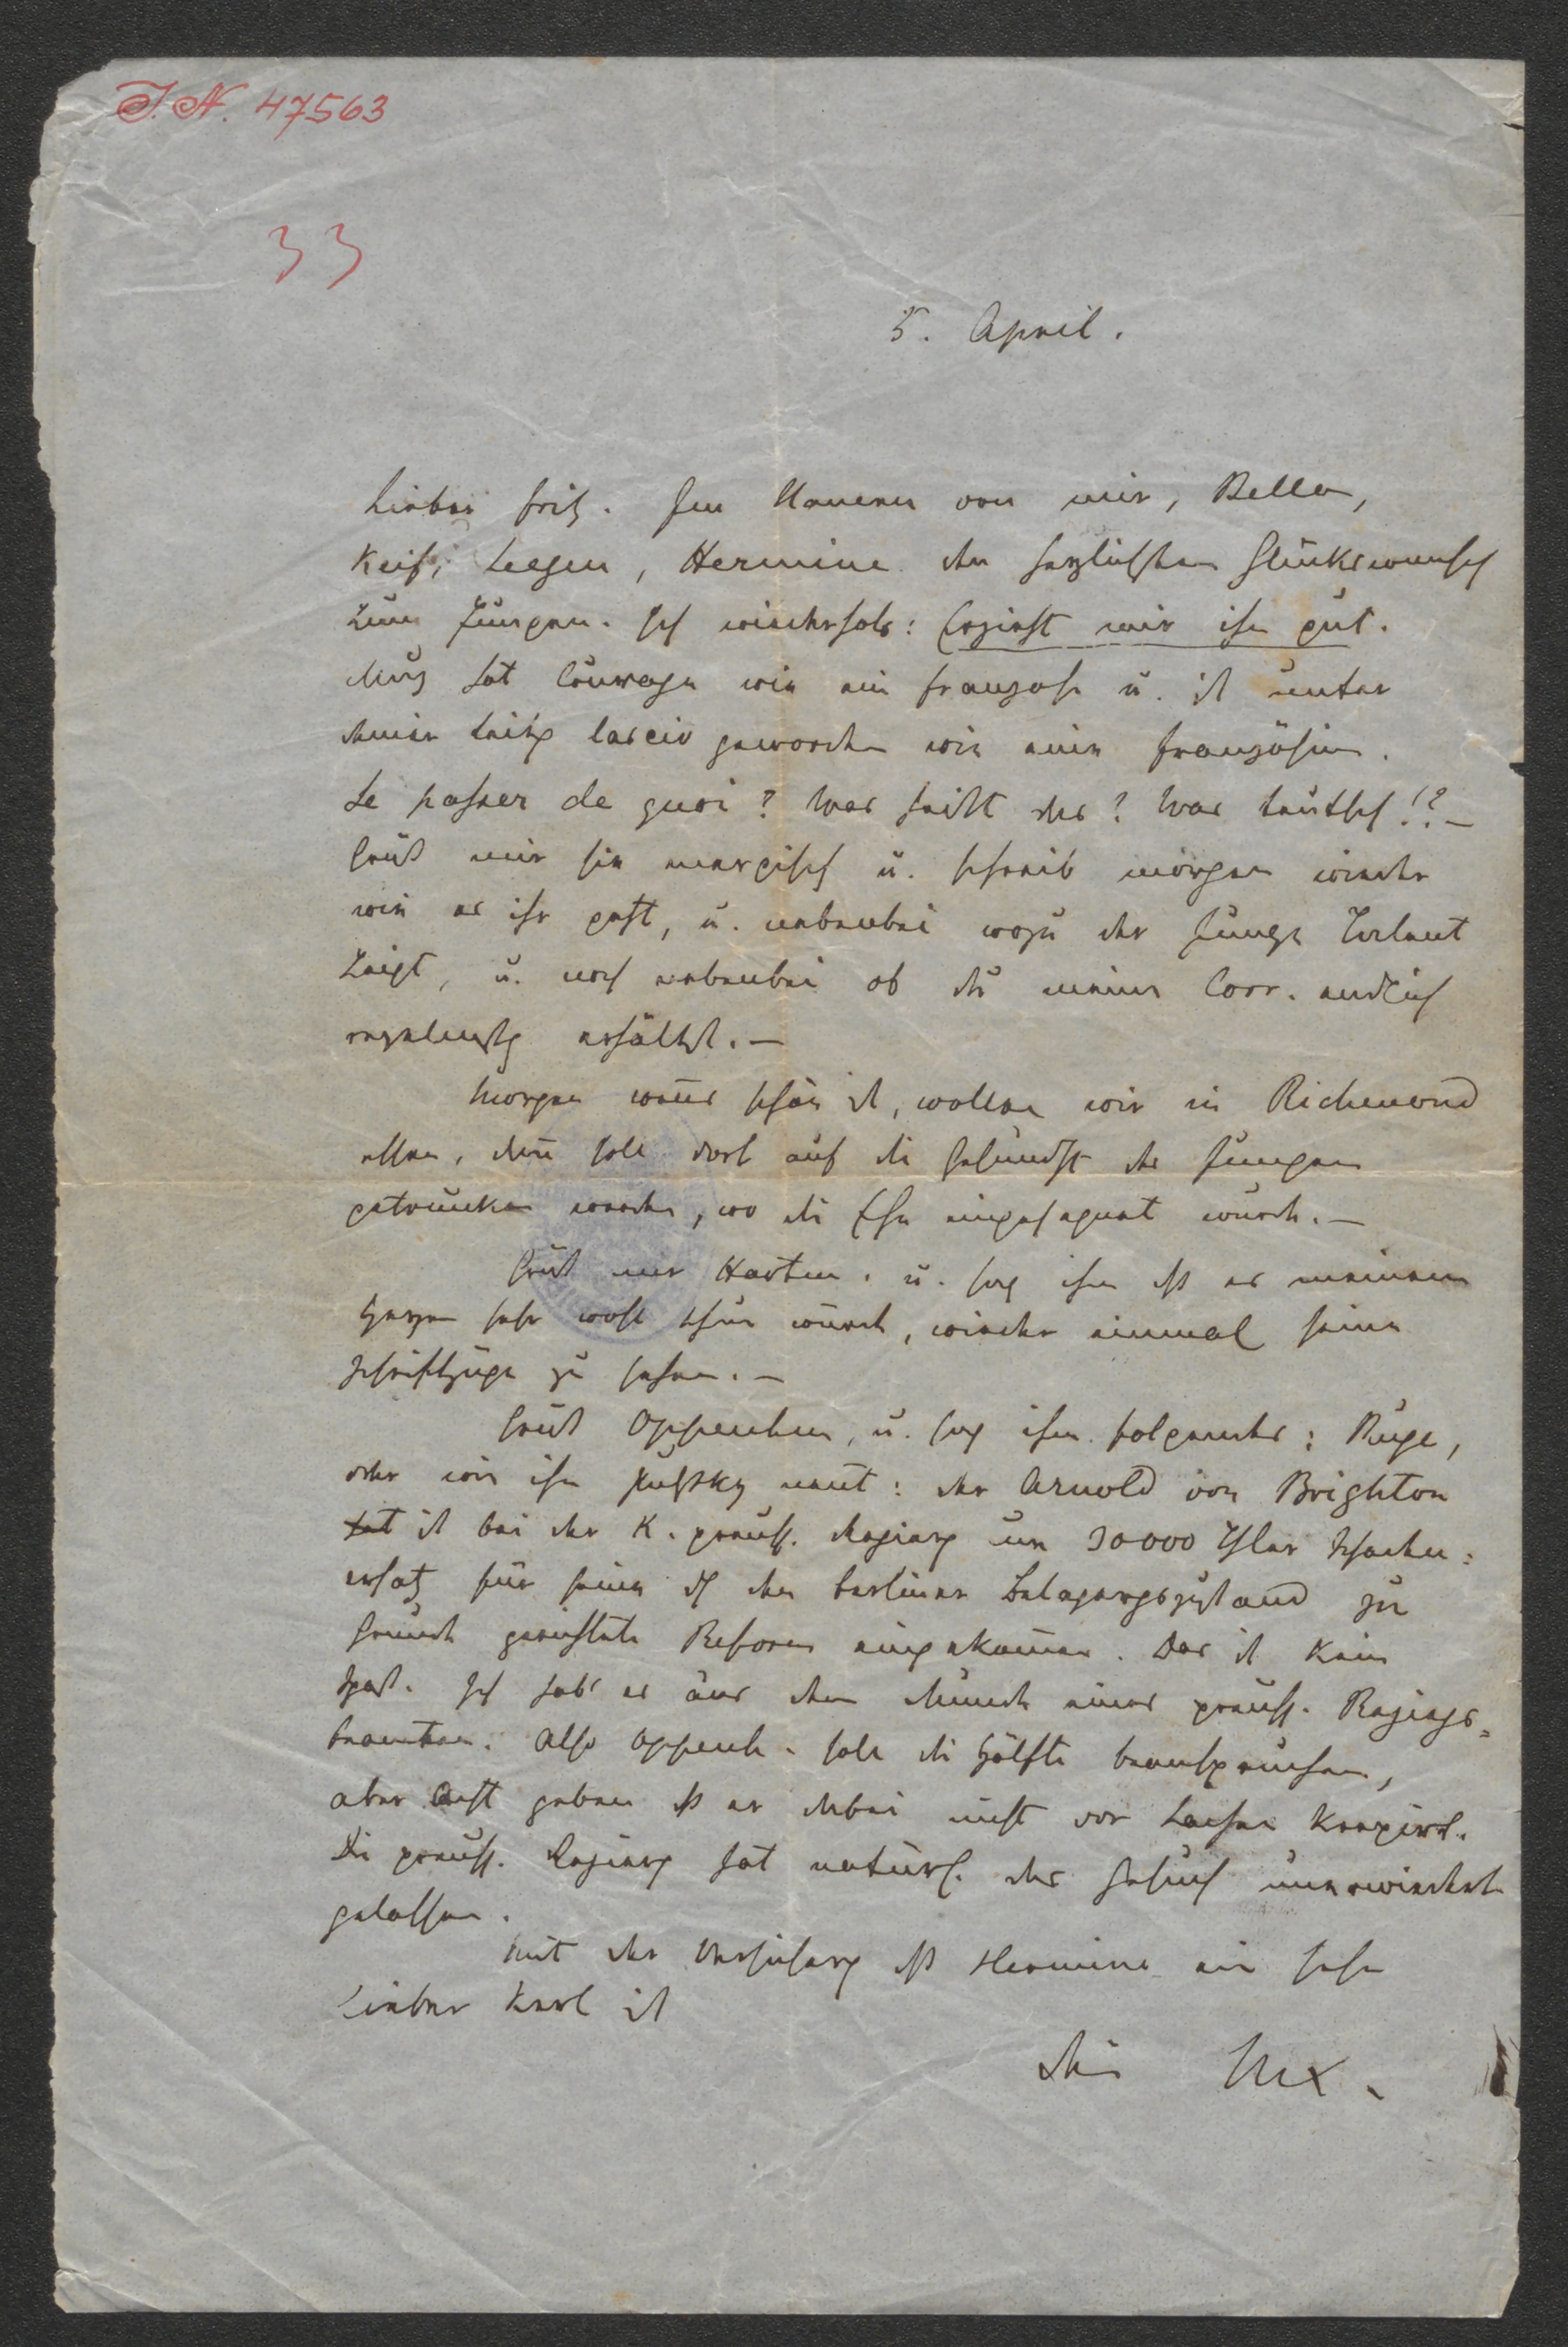 J. N. 47563
33
5. April.
Lieber Fritz. Im Namen von mir, Bella,
Keiß, Leegen, Hermine den herzlichsten Glückwunsch
zum Jungen. Ich wiederhole: Erzieht mir ihn gut.
Muz hat Courage wie ein Franzose u. ist unter
deiner Leitg lasciv geworden wie eine Französin.
Se passer de quoi? Was heißt das? Was deutsch!?—
Grüß mir sie energisch u. schreib morgen wieder
wie es ihr geht, u. nebenbei wozu der Junge Talent
zeigt, u. noch nebenbei ob du meine Corr. endlich
regelmßg erhältst.—
Morgen wenns schön ist, wollen wir in Richmond
essen, denn soll dort auf die Gesundht des Jungen
getrunken werden, wo die Ehe eingesegnet wurde.—
Grüß mir Hartm. u. sag ihm dß es meinem
Herzen sehr wohl thun würde, wieder einmal seine
Schriftzüge zu sehen.—
Grüß Oppenheim, u. sag ihm folgendes: Ruge,
oder wie ihn Pulszky nennt: der Arnold von Brighton
hat ist bei der K. preuß. Regierg um 30000 Thlar Schaden:
ersatz für seine dch den berliner Belagergszustand zu
Grunde gerichtete Reform eingekommen. Das ist kein
Spaß. Ich hab' es aus dem Munde eines preuß. Regiergs-
beamten. Also Oppenh. soll die Hälfte beanspruchen,
aber Acht geben dß er dabei nicht vor Lachen krepirt.
Die preuß. Regierg hat natürl. das Gesuch unerwiedert
gelassen.
Mit der Versicherg dß Hermine ein sehr
lieber Kerl ist
dein Mx.